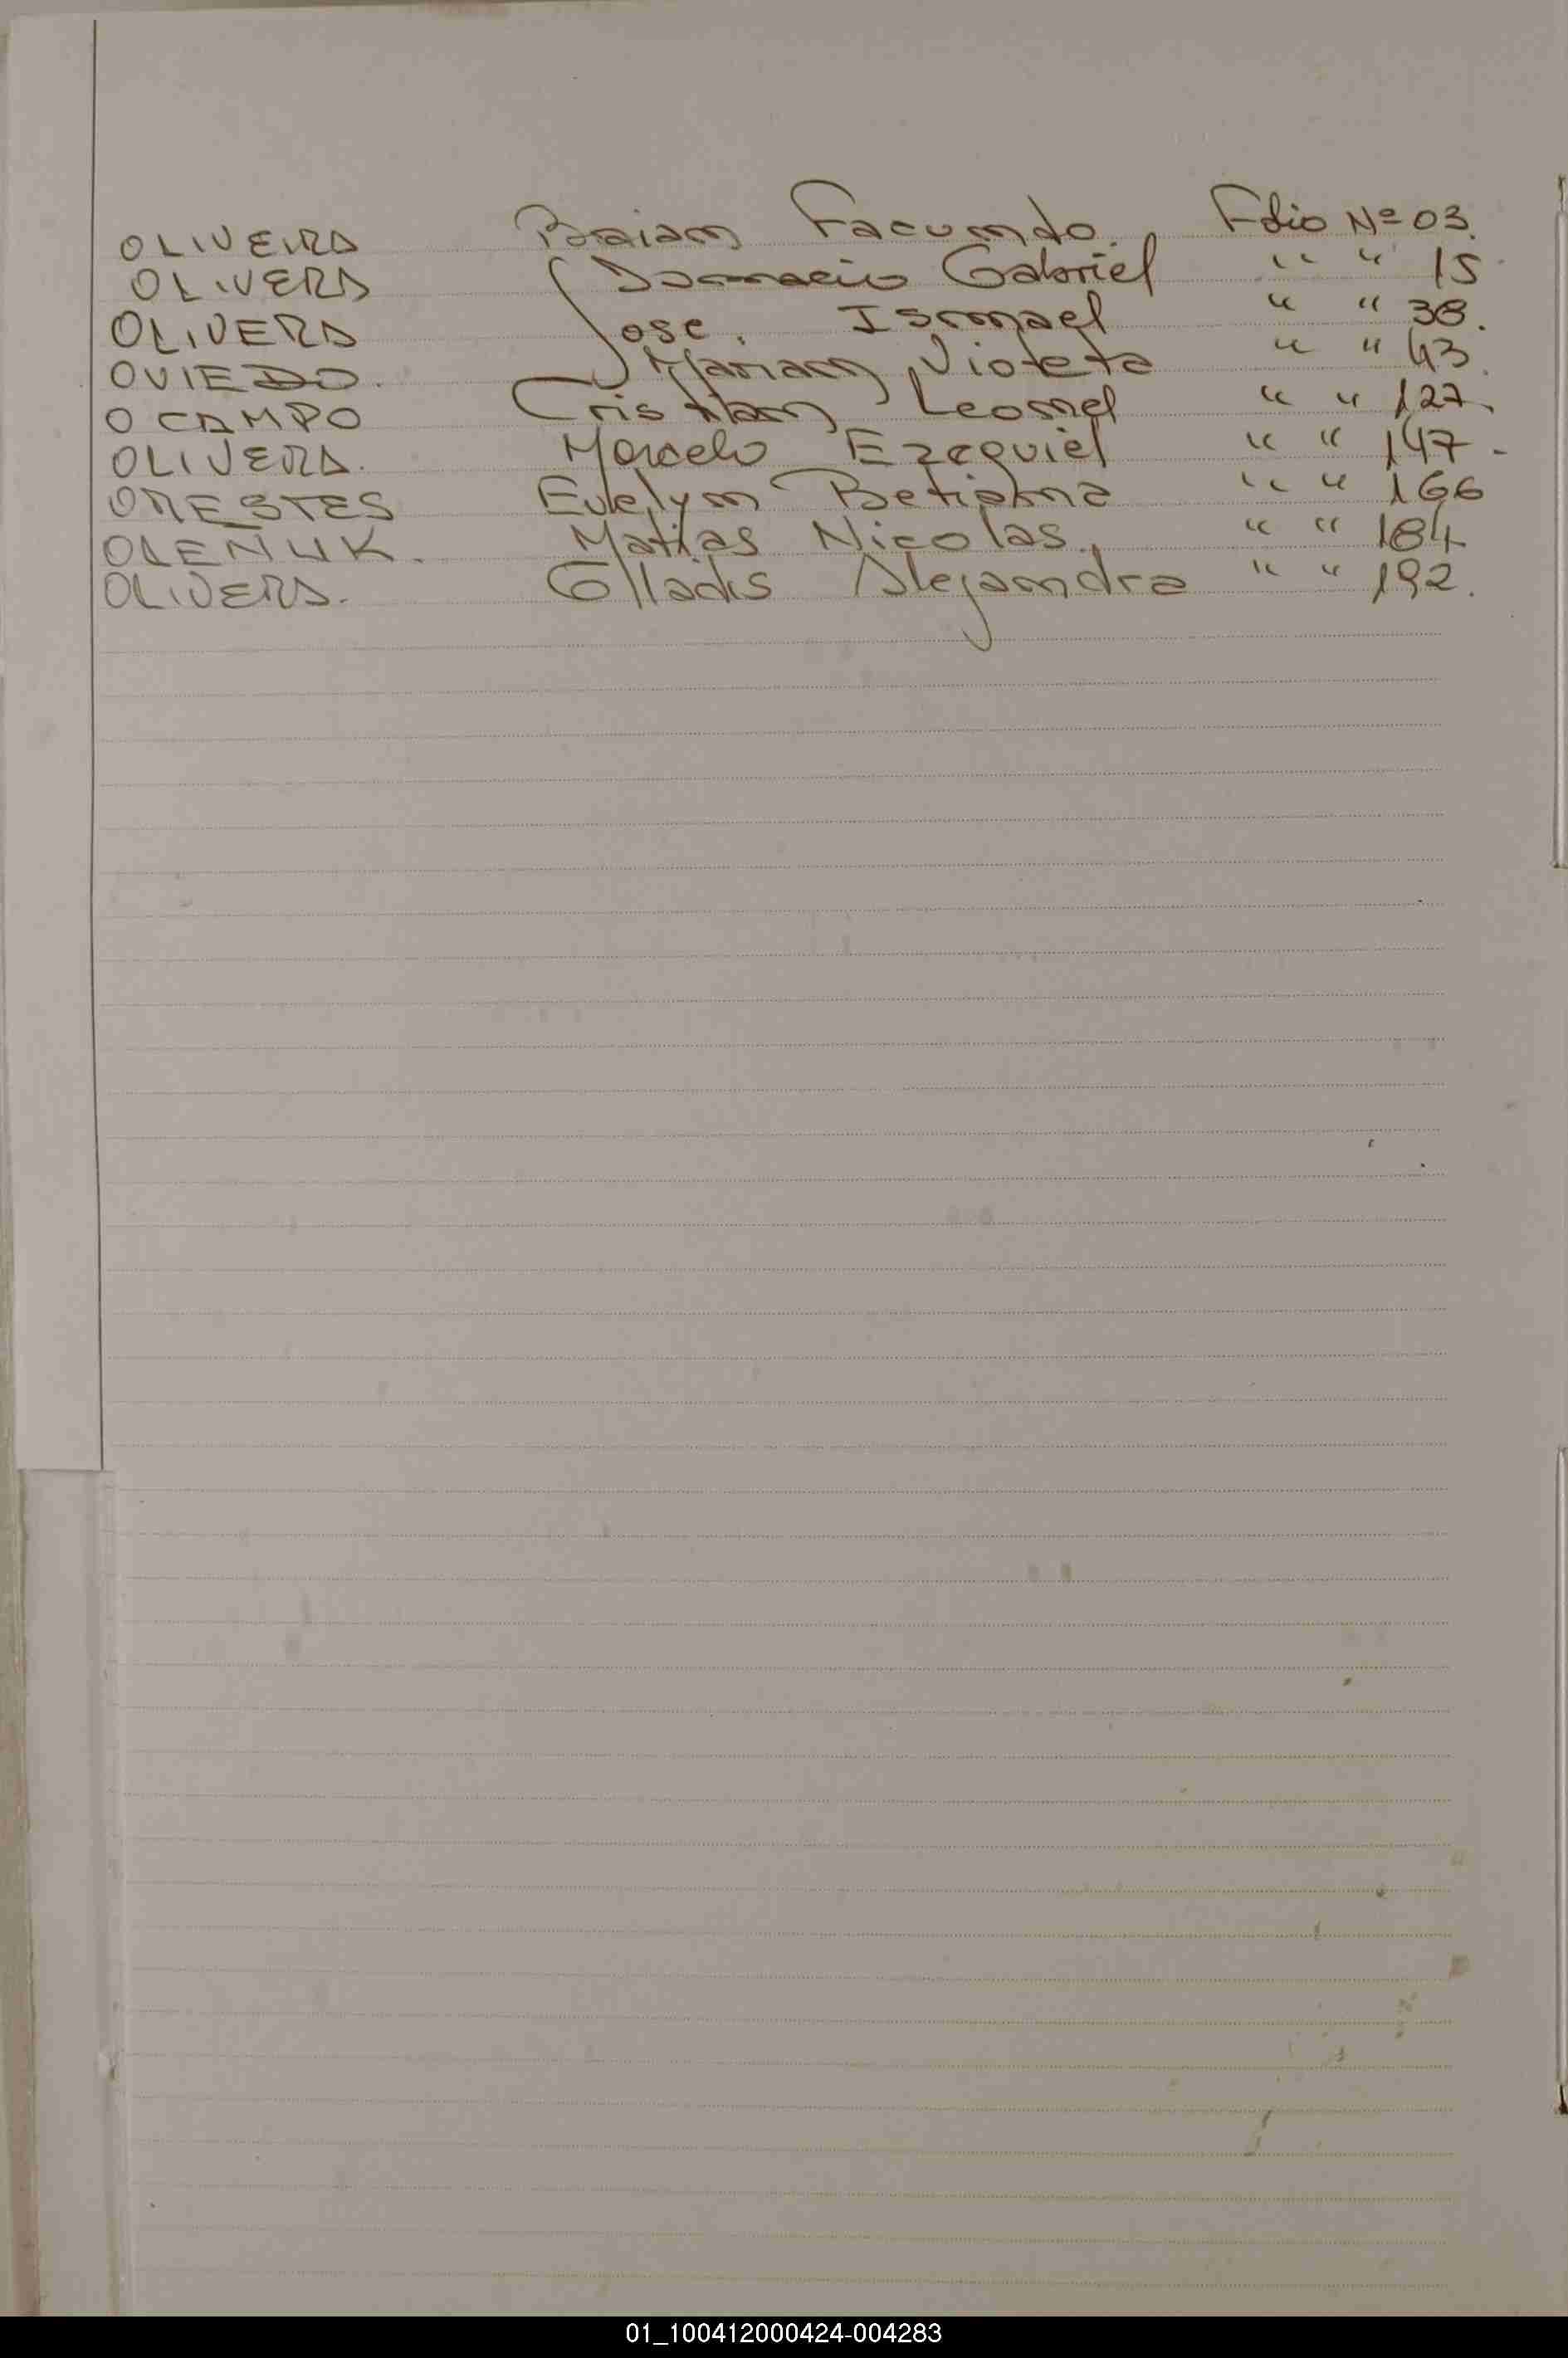 OLIVEIRA Braian Facundo. Folio Nº 03.
OLIVERA Gabriel " " 15
OLIVERA Jose. Ismael " " 38.
OVIEDO. Marian Violeta " " 43.
OCAMPO Cristian Leonel " " 127.
OLIVERA. Marcelo Ezequiel " " 147.
ORESTES Evelyn Betiana " " 166
OLENUK. Matias Nicolas. " " 184
OLIVERA. Glladis Alejandra " " 192.
01_100412000424-004283